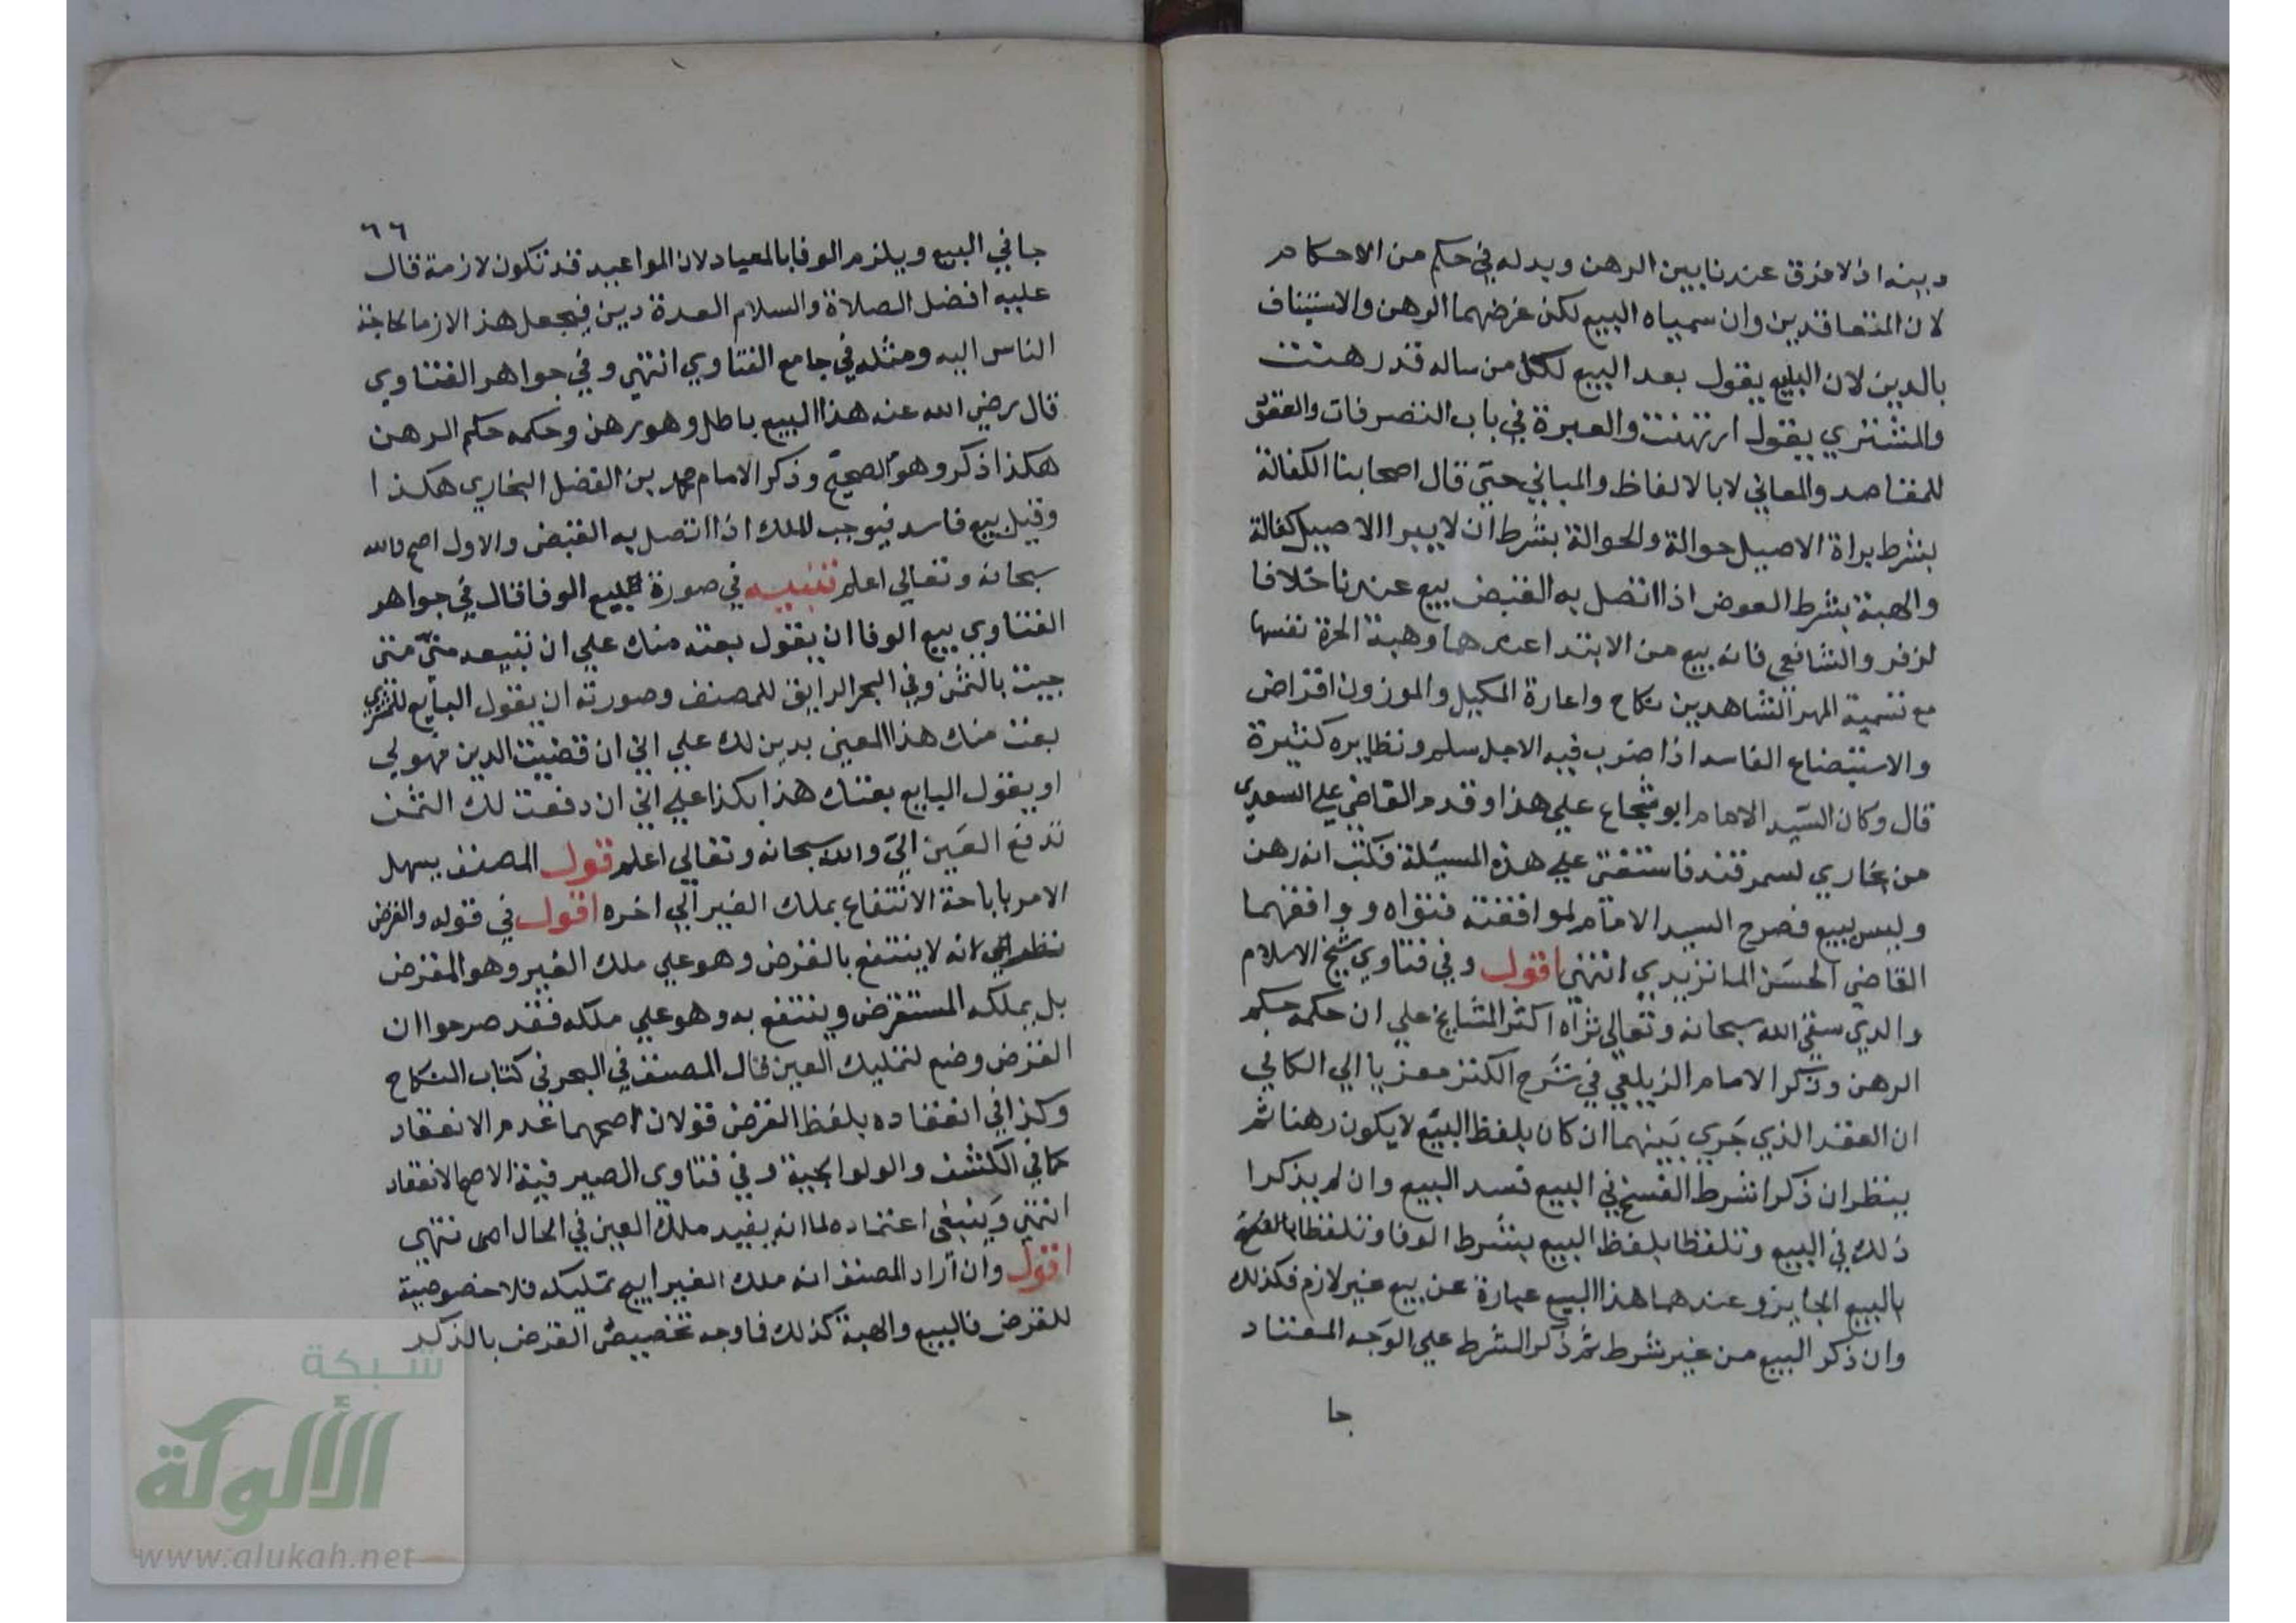 دينه اذ لا فرق عندنا بين الرهن وبدله في حكم من الاحكام
لان المتعاقدين وان سمياه البيع لكن غرضهما الرهن والاستيناف
بالدين لان البايع يقول بعد البيع لكل من ساله قد رهنت
والمشتري يقول ارتهنت والعبرة في باب التصرفات والعقود
للمقاصد والمعاني لا بالالفاظ والمباني حتي قال اصحابنا الكفالة
بشرط براة الاصيل حوالة والحوالة بشرط ان لا يبرا الاصيل كفالة
والهبة بشرط العوض اذا اتصل به القبض بيع عندنا خلافا
لزفر والشافعي فانه بيع من الابتدا عندهما وهبة الحرة نفسها
مع تسمية المهر الشاهدين نكاح واعارة المكيل والموزون اقتراض
والاستبضاع الفاسد اذا ضرب فيه الاجل سلم ونظايره كثيرة
قال وكان السيد الامام ابو شجاع علي هذا وقدم القاضي علي السعدي
من بخاري لسمرقند فاستفتي علي هذه المسيلة فكتب انه رهن
وليس ببيع ففرح السيد الامام لموافقته فتواه ووافقهما
القاضي الحسن الماتريدي انتهي اقول وفي فتاوي شيخ الاسلام
والدي سقي الله سبحانه وتعالي ثراه اكثر المشايخ علي ان حكمه حكم
الرهن وذكر الامام الزيلعي في شرح الكنز معزيا الي الكافي
ان العقد الذي جري بينهما ان كان بلفظ البيع لا يكون رهنا ثم
ينظر ان ذكرا شرط الفسخ في البيع فسد البيع وان لم يذكرا
ذلك في البيع وتلفظا بلفظ البيع بشرط الوفا وتلفظا بالفسخ
بالبيع الجايز وعندهما هذا البيع عبارة عن بيع غير لازم فكذلك
وان ذكر البيع من غير شرط ثم ذكر الشرط علي الوجه المعتاد
جا
٦٦
جا في البيع ويلزم الوفا بالمعياد لان المواعيد قد تكون لازمة قال
عليه افضل الصلاة والسلام العدة دين فيجعل هذا لازما لحاجة
الناس اليه ومثله في جامع الفتاوي انتهي وفي جواهر الفتاوي
قال رضي الله عنه هذا البيع باطل وهو رهن وحكمه حكم الرهن
هكذا ذكر وهو الصحيح وذكر الامام محمد بن الفضل البخاري هكذا
وقيل بيع فاسد فيوجب الملك اذا اتصل به القبض والاول اصح والله
سبحانه وتعالي اعلم تنبيه في صورة بيع الوفا قال في جواهر
الفتاوي بيع الوفا ان يقول بعته منك علي ان تبيعه مني متي
جيت بالثمن وفي البحر الرايق للمصنف وصورته ان يقول البايع للمشتري
بعت منك هذا المعين بدين لك علي اني ان قضيت الدين فهو لي
او يقول البايع بعتك هذا بكذا علي اني ان دفعت لك الثمن
تدفع العين الي والله سبحانه وتعالي اعلم قول المصنف يسهل
الامر باباحة الانتفاع بملك الغير الي اخره اقول في قوله والقرض
نظر انه لا ينتفع بالقرض وهو علي ملك الغير وهو المقرض
بل يملكه المستقرض وينتفع به وهو علي ملكه فقد صرحوا ان
القرض وضع لتمليك العين قال المصنف في البحر في كتاب النكاح
وكذا في انعقاده بلفظ القرض قولان اصحهما عدم الانعقاد
كما في الكشف والولوالجية وفي فتاوي الصيرفية الاصح الانعقاد
انتهي وينبغي اعتماده لما انه يفيد ملك العين في الحال اهـ فتنتهي
اقول وان اراد المصنف انه ملك الغير ابيح تمليكه فلا خصوصية
للقرض فالبيع والهبة كذلك فاوجه تخصيص القرض بالذكر
شبكة
الألوكة
www.alukah.net